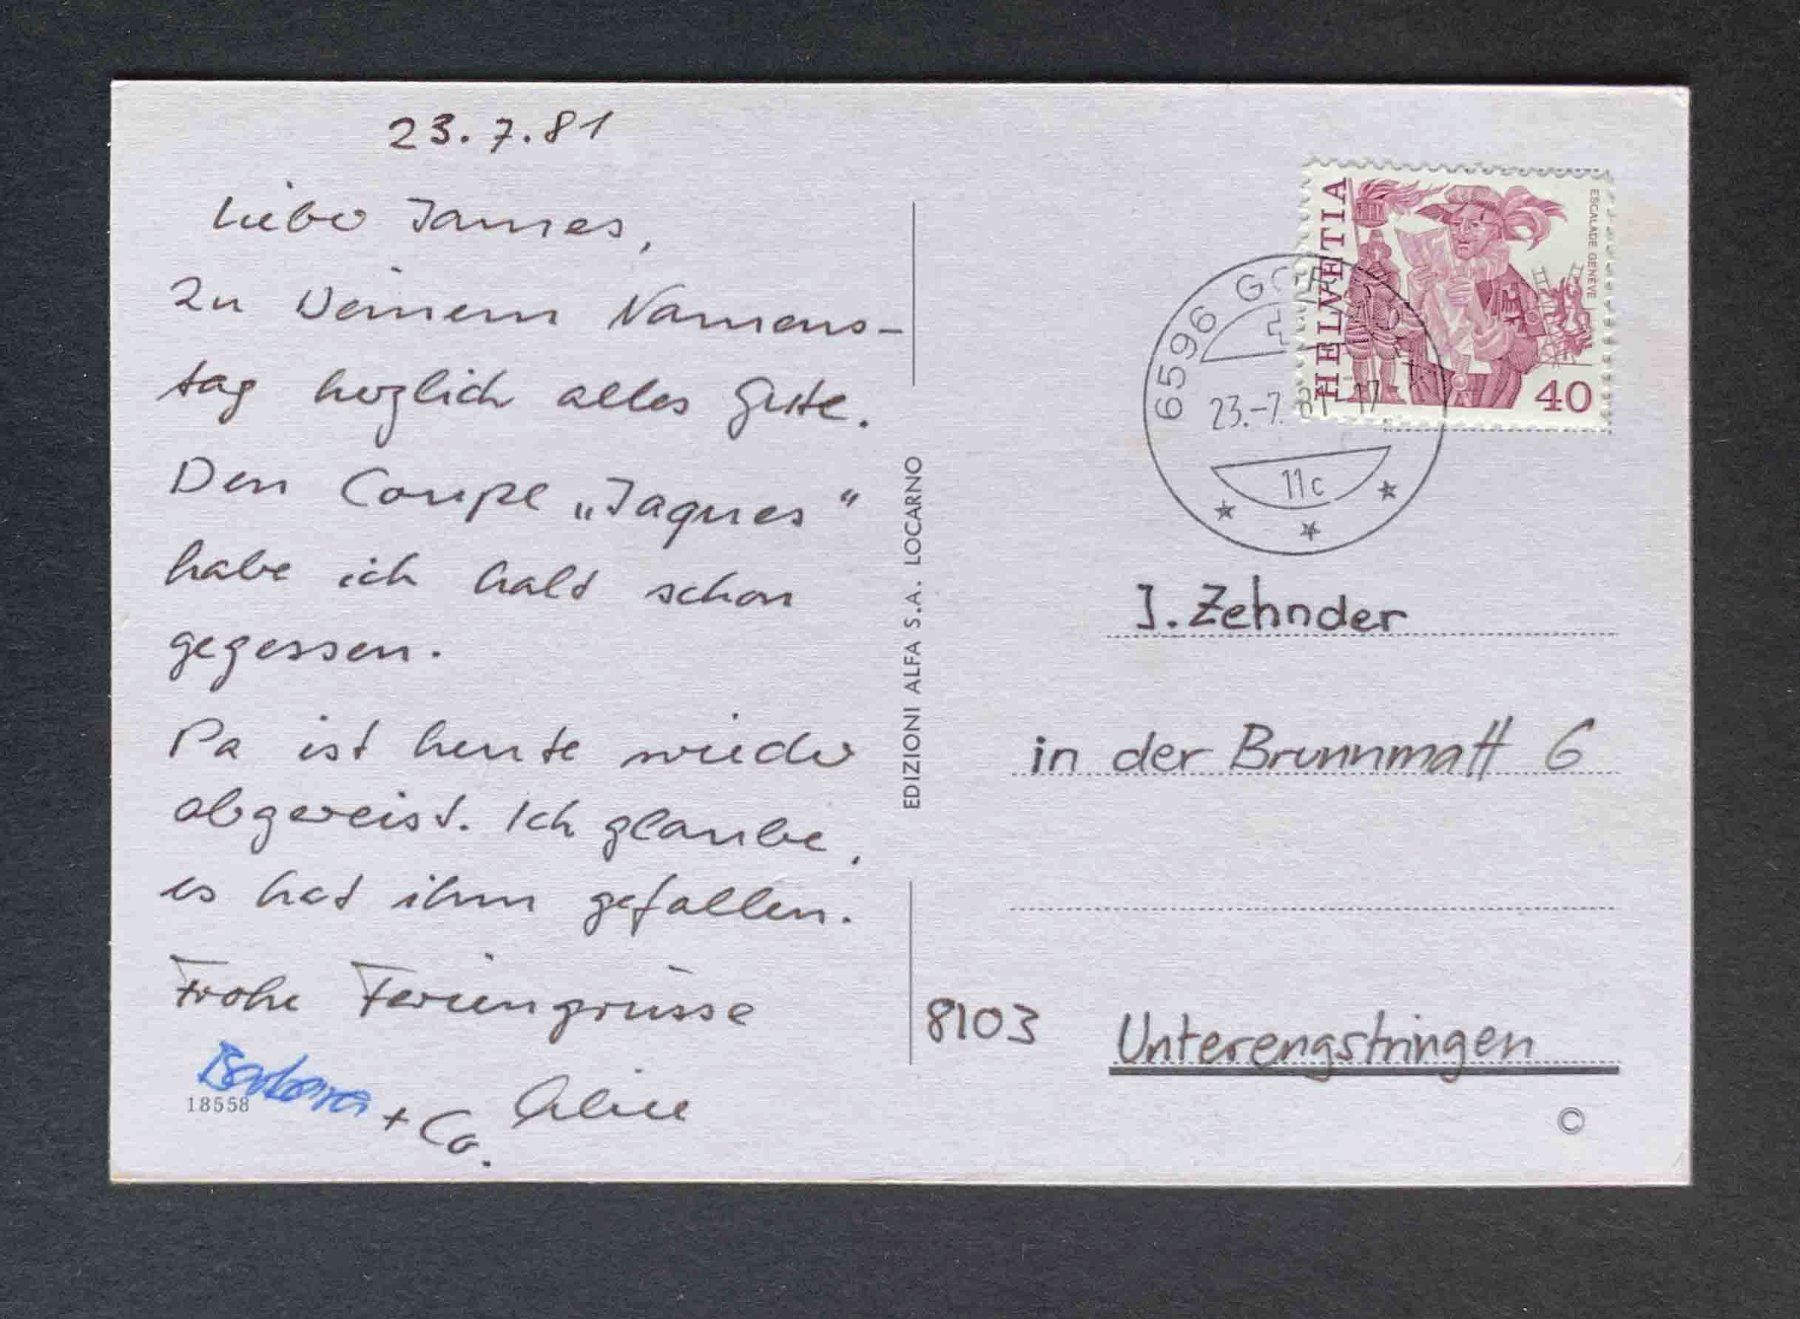 23.7.81
Lieber James,
Zu Deinem Namens-
tag herzlich alles Gute.
Den Coupe „Jaques“
habe ich halt schon
gegessen.
Pa ist heute wieder
abgereist. Ich glaube,
es hat ihm gefallen.
Frohe Feriengrüsse
Barbara + Co. Alice
18558
EDIZIONI ALFA S.A. LOCARNO
HELVETIA
ESCALADE GENÈVE
40
6596
23.-7. 81-17
11c
J. Zehnder
in der Brunnmatt 6
8103 Unterengstringen
©